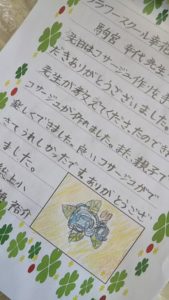 フラワースクール 彩花
駒宮 千代 先生
先日はコサージュ作りを
ただきありがとうございました。
先生が教えてくださったのでき
コサージュが作れました。また、親子で
変しでできました。良いコサージュがで
きてうれしかったです。ありがとうござ
ました。
上小
裕介